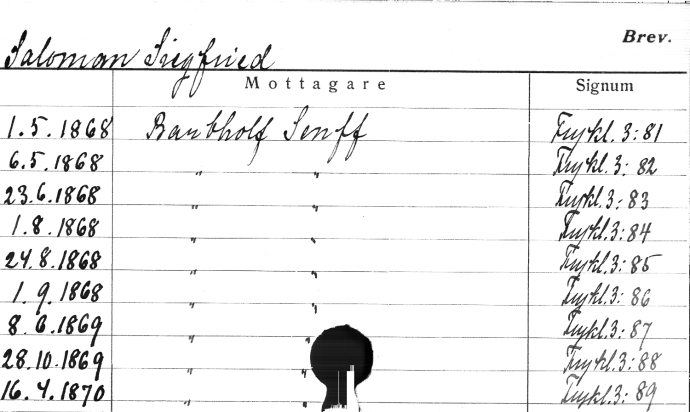 Brev.
Saloman Siegfried
Mottagare Signum
1.5.1868 Senff Frykl. 3:81
6.5.1868 " " Frykl. 3:82
23.6.1868 " " Frykl. 3:83
1.8.1868 " " Frykl. 3:84
24.8.1868 " " Frykl. 3:85
1.9.1868 " " Frykl. 3:86
8.6.1869 " " Frykl. 3:87
28.10.1869 " " Frykl. 3:88
16.4.1870 " " Frykl. 3:89